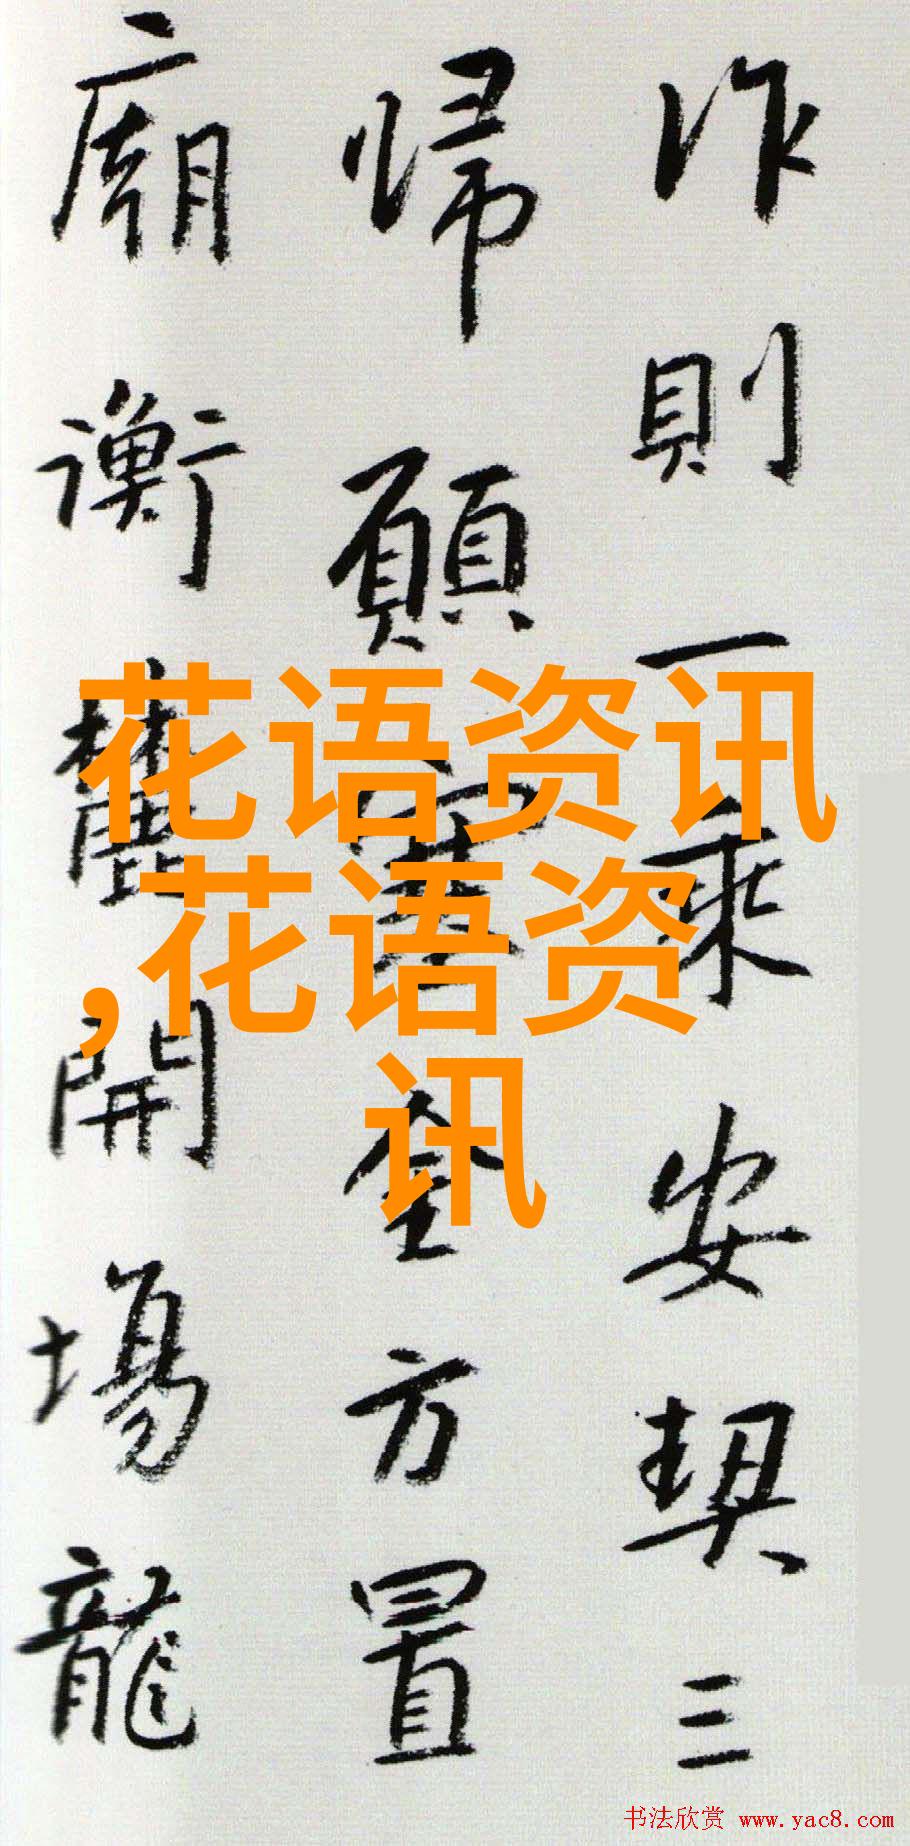 作則一乘安契三
歸願方置
廟衡麓開場龍
花语资讯
,花语资
讯
书法欣赏 www.yac8.com